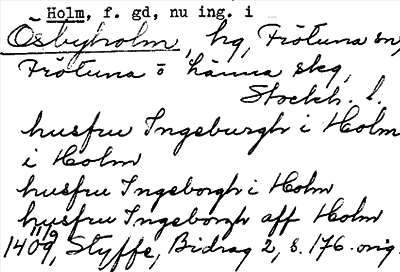 Holm, f. gd, nu ing. i
Ösbyholm, hg, Frötuna sn,
Frötuna o länna skg,
Stockh. l.
husfru Ingeburgh i Holm
i Holm
husfru Ingeborgh i Holm
husfru Ingeborgh aff Holm
11/9
1409, Styffe, Bidrag 2, s. 176. orig.